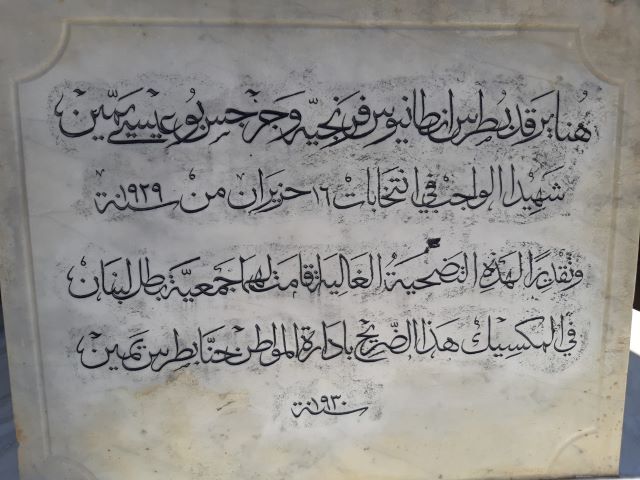 هنا يرقد بطرس انطانيوس فرنجيه وجرجس بو عيسى يمّين
شهيدا الواجب في انتخابات ١٦ حزيران من سنة ١٩٢٩
وتقديرًا لهذه التضحية الغالية اقامت لهما جمعية بطل لبنان
في المكسيك هذا الضريح بادارة المواطن حنا بطرس يمّين
سنة ١٩٣٠